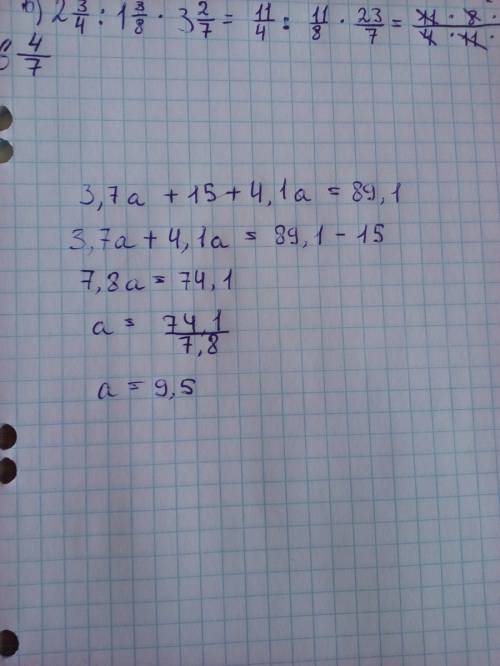 б) 2 3/4 : 1 3/8 · 3 2/7 = 11/4 : 11/8 · 23/7 = 11 · 8 ·/4 · 11 ·
6 4/7
3,7a + 15 + 4,1a = 89,1
3,7a + 4,1a = 89,1 - 15
7,8a = 74,1
a = 74,1/7,8
a = 9,5